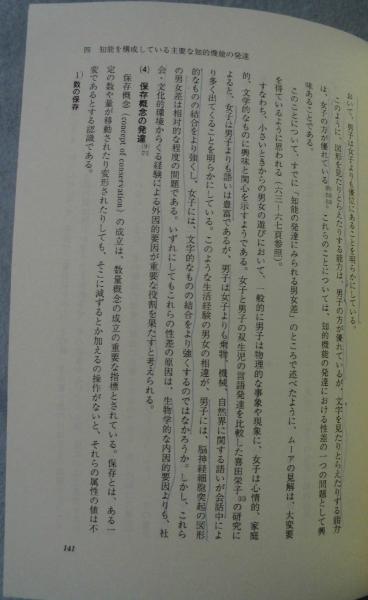 四　知能を構成している主要な知的機能の発達
おいて、男子は女子よりも優位にあることを明らかにしている。
このように、図形を見たりとらえたりする能力は、男子の方が優れているが、文字を見たりとらえたりする能力
は、女子の方が優れている。これらのことについては、知的機能の発達における性差の一つの問題として興
味あることである。
このことについて、すでに「知能の発達にみられる男女差」のところで述べたように、ムーアの見解は、大変要
を得ているように思われる（六三—六七頁参照）。
すなわち、小さいときからの男女の遊びにおいて、一般的に男子は物理的な事象や現象に、女子は心情的、家庭
的、文学的なものに興味と関心を示すようである。女子と男子の双生児の言語発達を比較した喜田栄子の研究に
よると、女子は男子よりも語いは豊富であるが、男子は女子よりも乗物、機械、自然界に関する語いが会話中によ
り多く出てくることを明らかにしている。このような生活経験の男女の相違が、男子には、脳神経細胞突起の図形
的なものの結合をより強くし、女子には、文字的なものの結合をより強くするのではなかろうか。しかし、これら
の男女差は相対的な程度の問題である。いずれにしてもこれらの性差の原因は、生物学的な内因的要因よりも、社
会・文化的環境からくる経験による外因的要因が重要な役割を果たすと考えられる。
(4)　保存概念の発達
保存概念（concept of conservation）の成立は、数量概念の成立の重要な指標とされている。保存とは、ある一
定の数や量が移動されたり変形されたりしても、そこに減ずるとか加えるの操作がないと、それらの属性の値は不
変であるとする認識である。
1) 数の保存
141